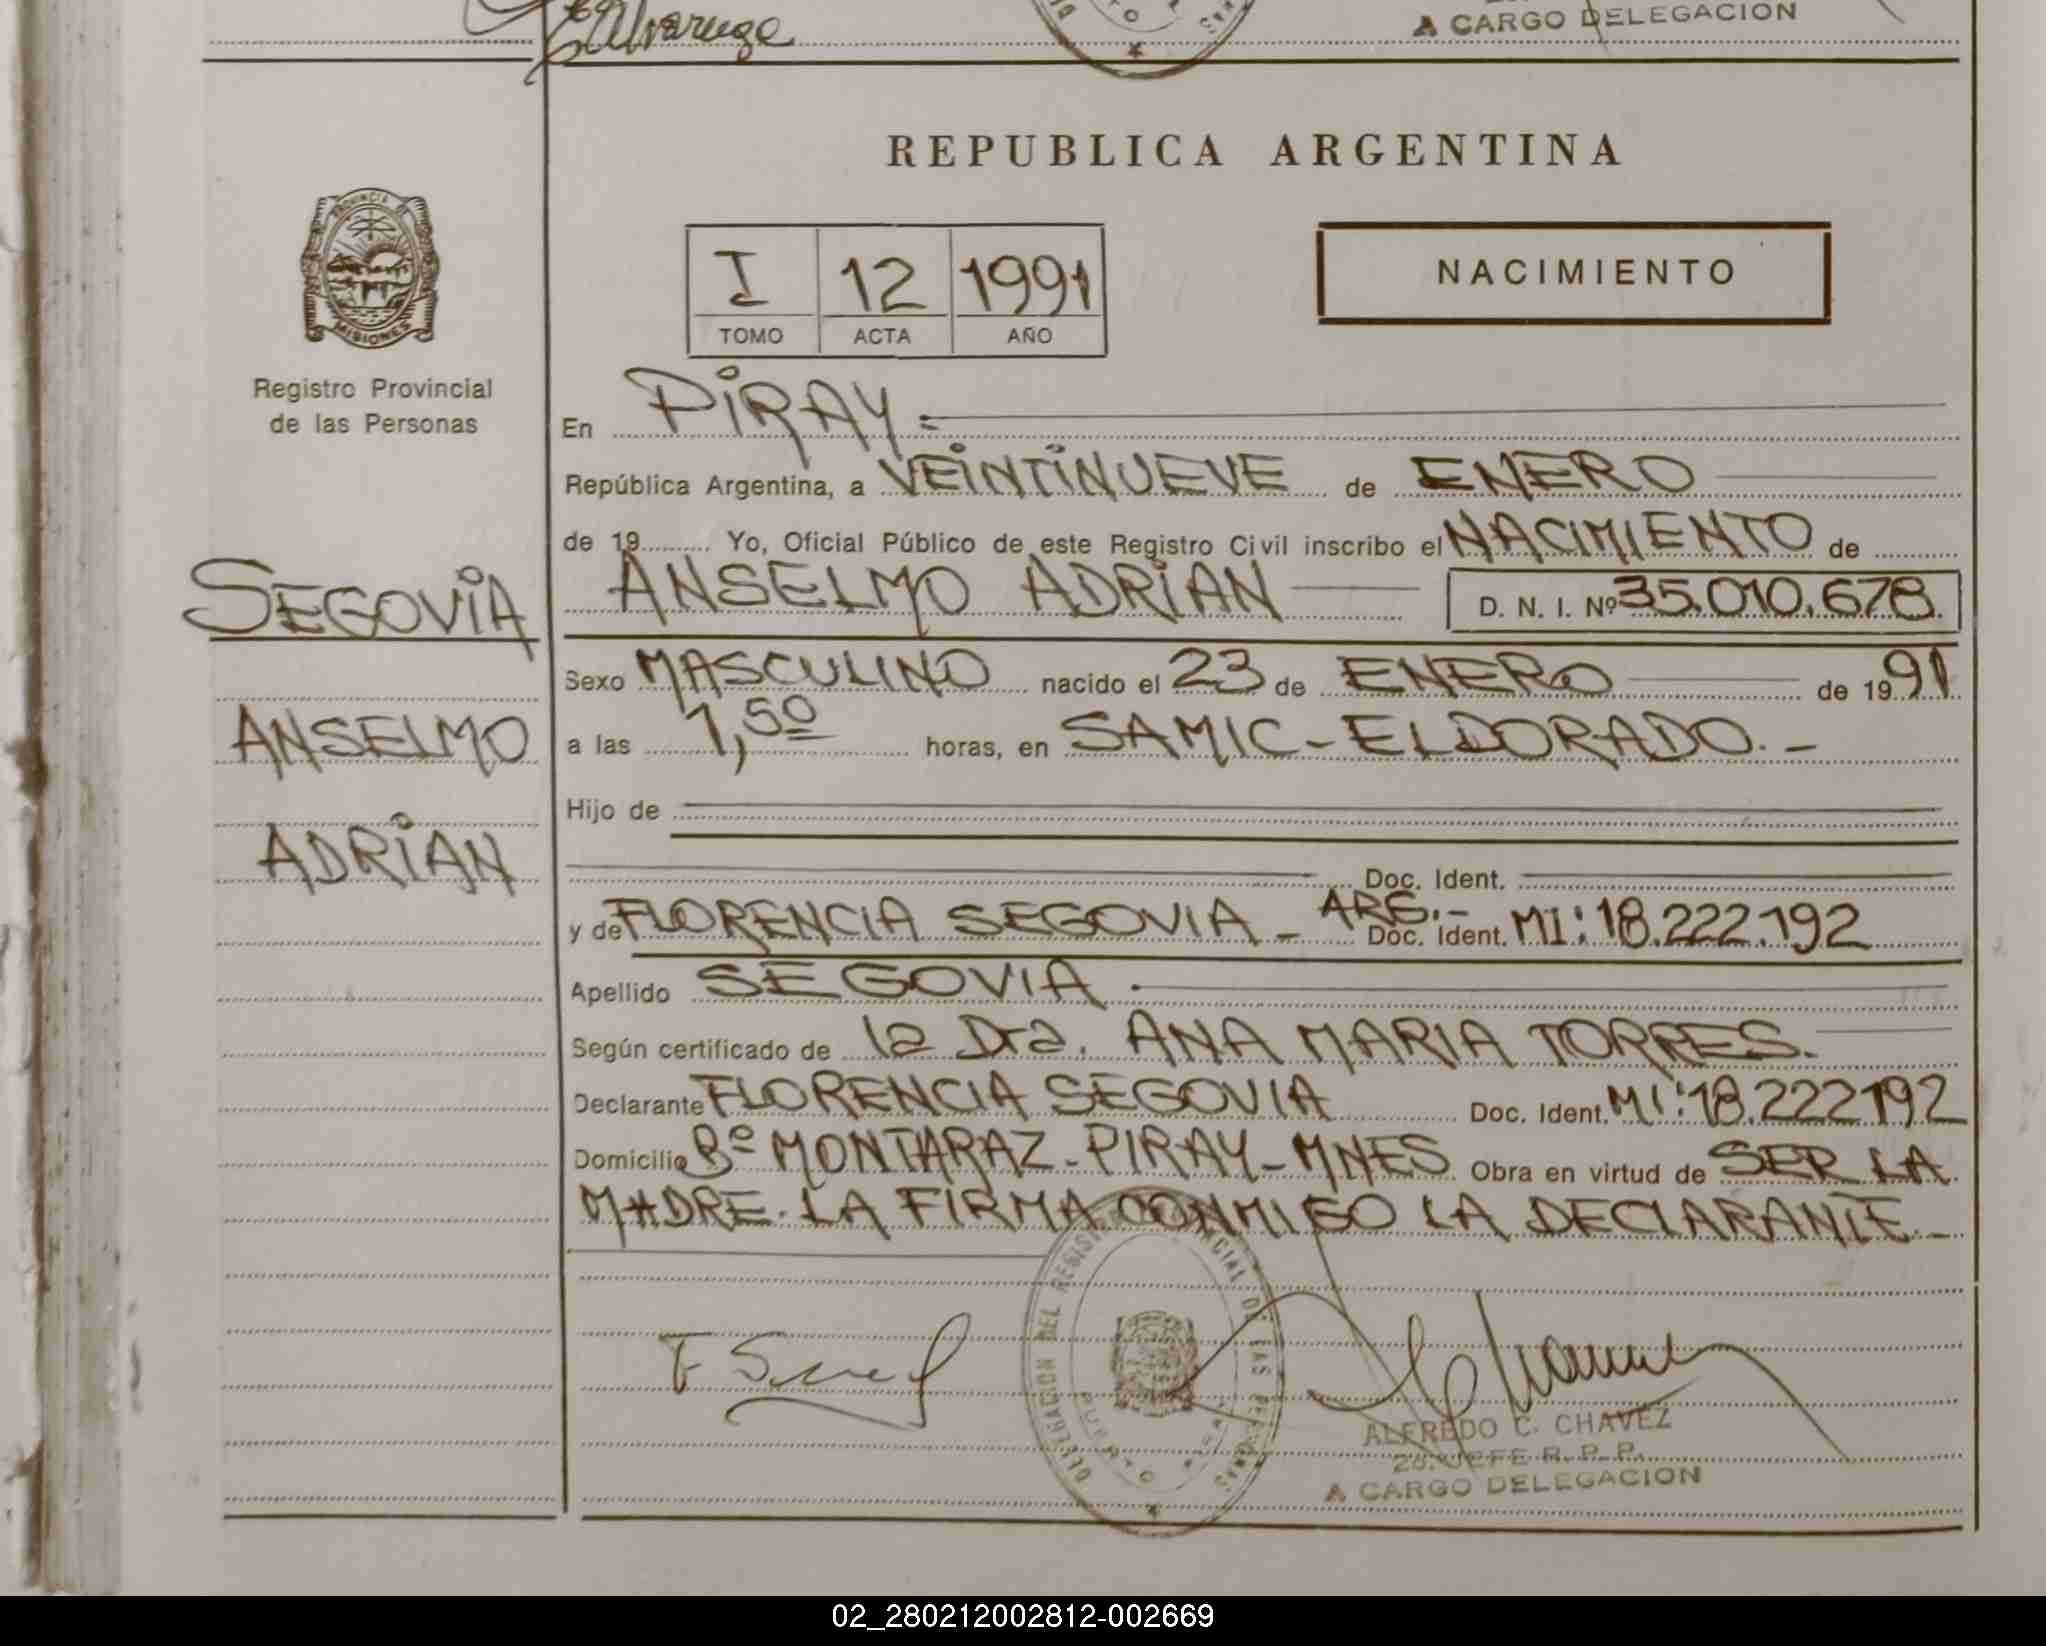 Alvarenga
A CARGO DELEGACION
REPUBLICA ARGENTINA
PROVINCIA DE
MISIONES
Registro Provincial
de las Personas
I 12 1991
TOMO ACTA AÑO
NACIMIENTO
En PIRAY.=
República Argentina, a VEINTINUEVE de ENERO
de 19 Yo, Oficial Público de este Registro Civil inscribo el NACIMIENTO de
SEGOVIA
ANSELMO ADRIAN D. N. I. Nº 35.010.678
Sexo MASCULINO nacido el 23 de ENERO de 19 91
ANSELMO
a las 1,50 horas, en SAMIC - ELDORADO. -
Hijo de
ADRIAN
Doc. Ident.
y de FLORENCIA SEGOVIA - ARG.- Doc. Ident. MI: 18.222.192
Apellido SEGOVIA.
Según certificado de la Dra. ANA MARIA TORRES.
Declarante FLORENCIA SEGOVIA Doc. Ident. MI: 18.222192
Domicilio Bº MONTARAZ - PIRAY - MNES Obra en virtud de SER LA
MADRE. LA FIRMA CONMIGO LA DECLARANTE. -
DELEGACION DEL REGISTRO PROVINCIAL DE LAS PERSONAS
PUERTO PIRAY
ALFREDO C. CHAVEZ
2º. JEFE R. P. P.
A CARGO DELEGACION
02_280212002812-002669